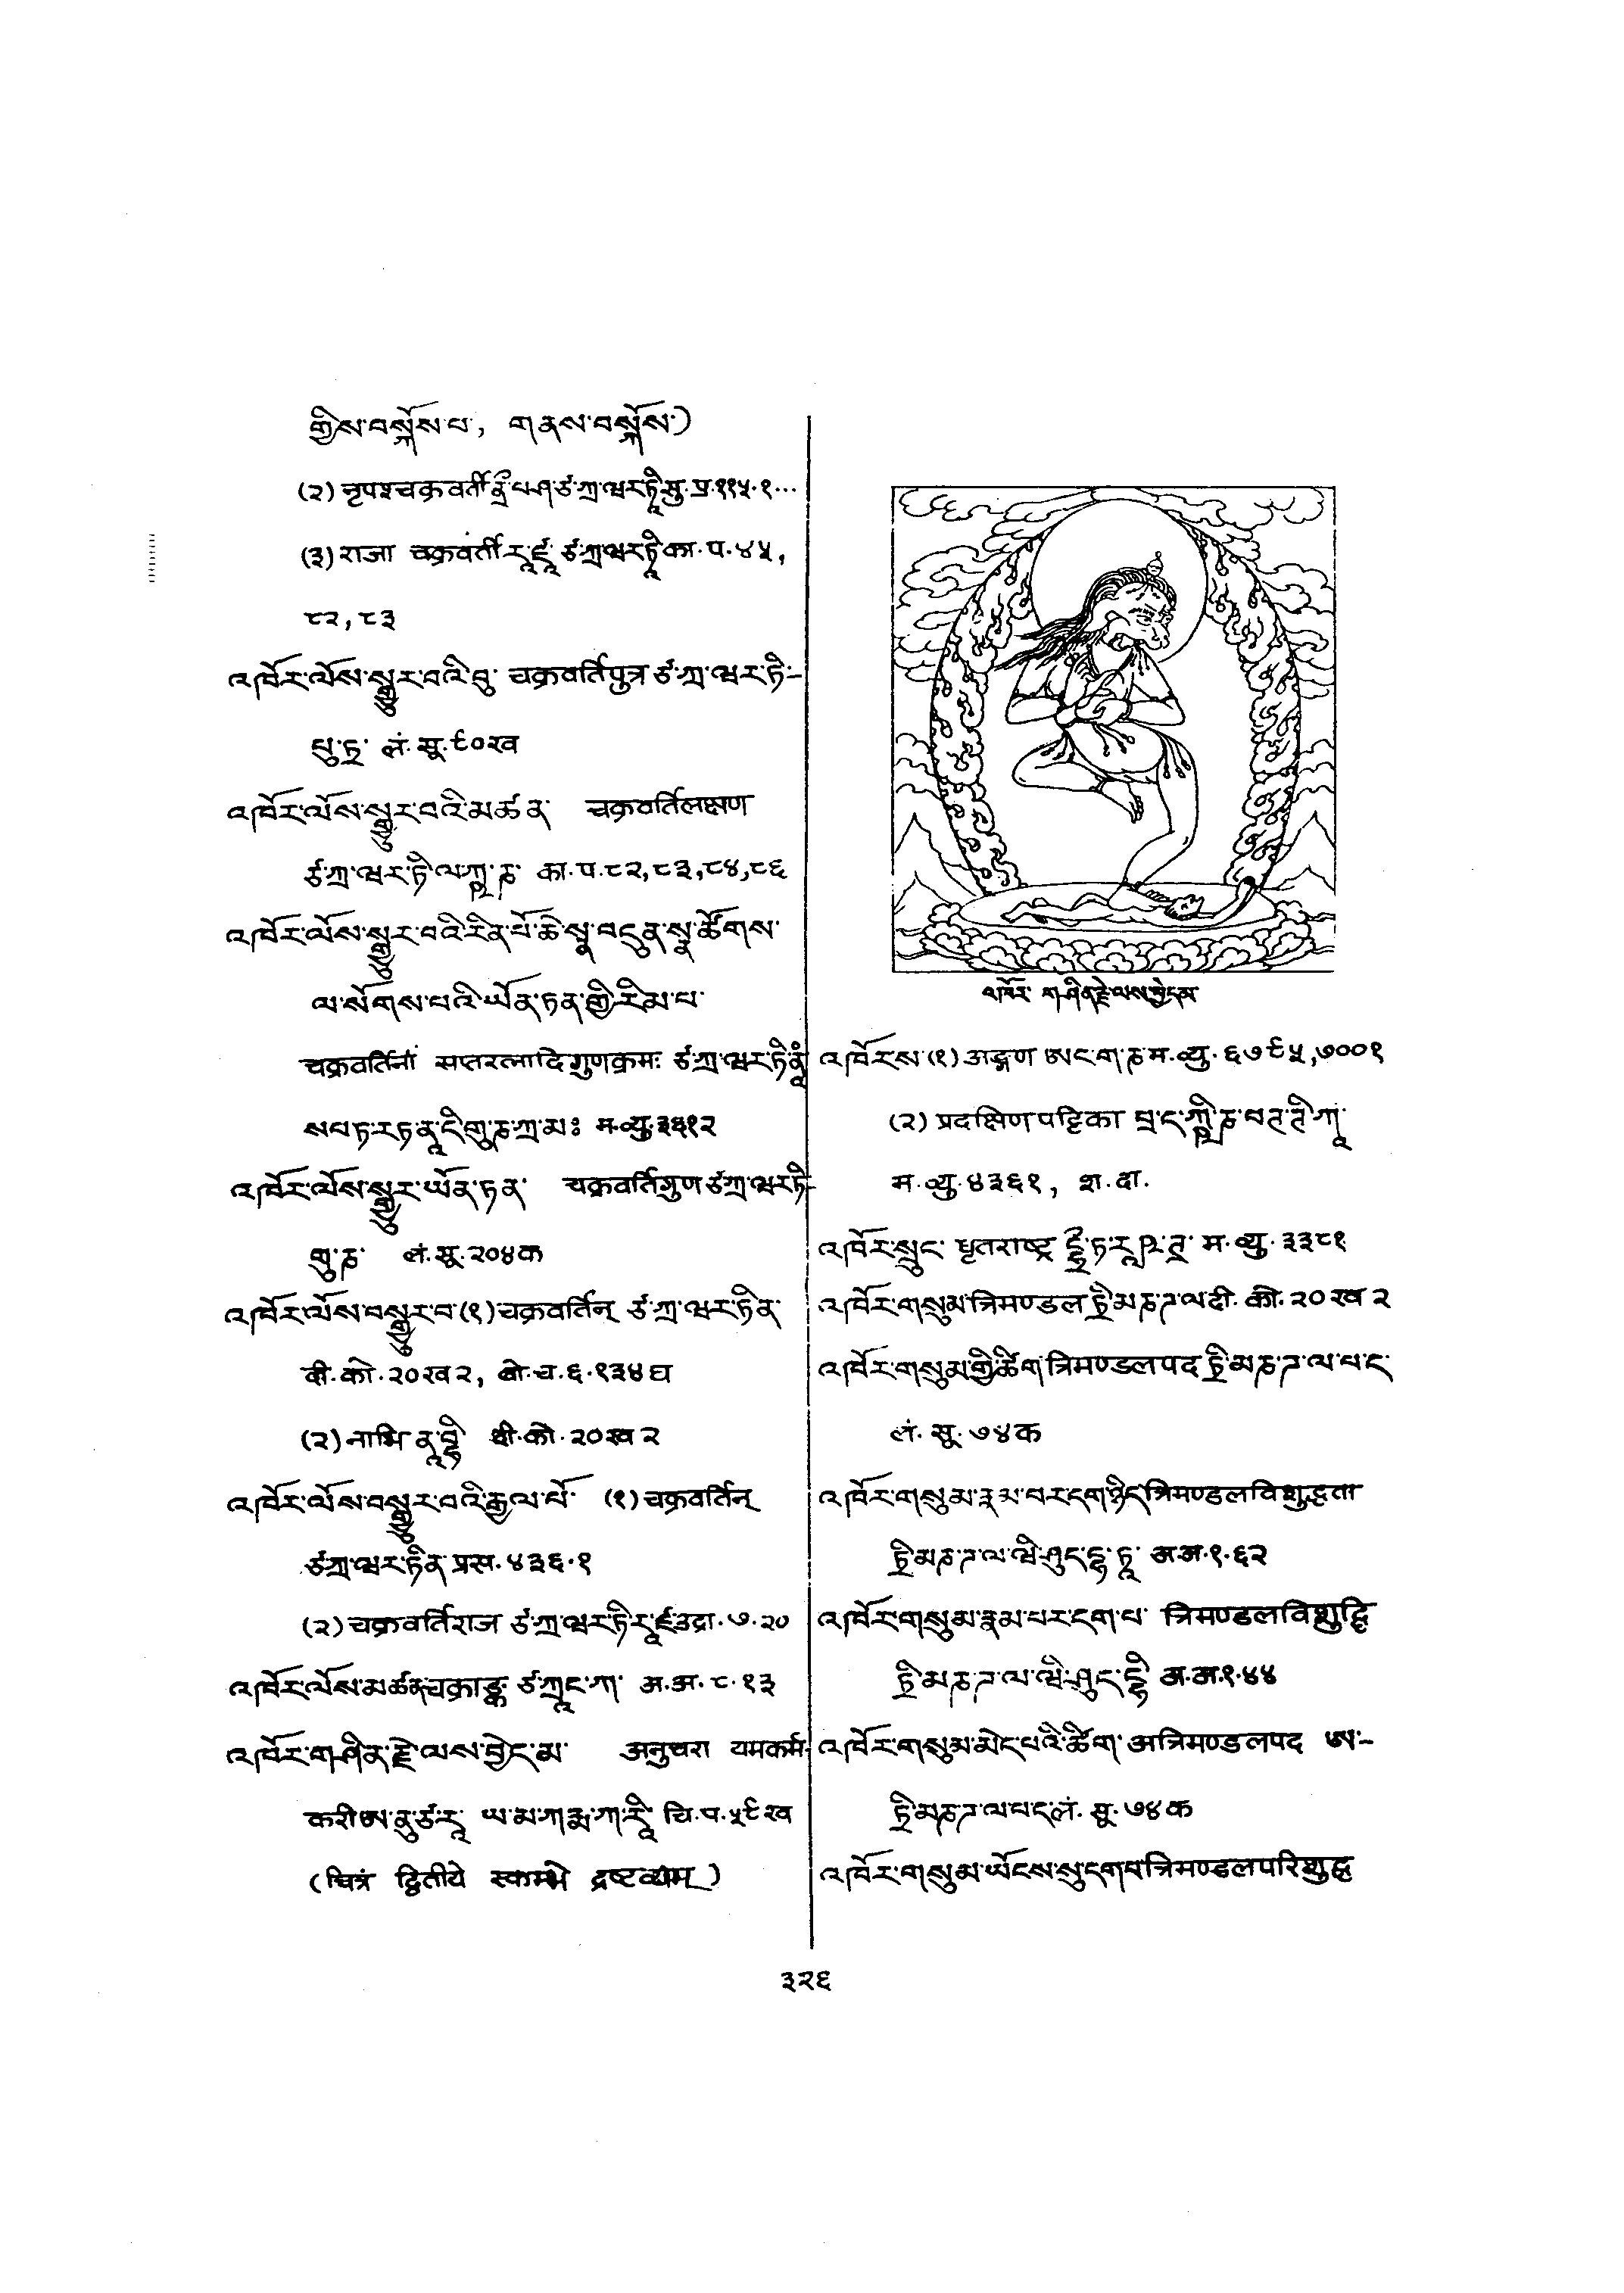 གྱིས་བསྐོས་པ་, གནས་བསྐོས་)
(२) नृपश्चक्रवर्ती ནྲྀ་པ་ཤྩ་ཀྲ་ཝརྟཱི सु.प्र.११५.१...
(३) राजा चक्रवर्ती རཱ་ཛཱ་ ཙ་ཀྲ་ཝརྟཱི का.प.४५,
८२,८३
འཁོར་ལོས་སྒྱུར་བའི་བུ་ चक्रवर्तिपुत्र ཙ་ཀྲ་ཝར་ཏི–
པུ་ཏྲ་ लं.सू.९०ख
འཁོར་ལོས་སྒྱུར་བའི་མཚན་ चक्रवर्तिलक्षण
ཙ་ཀྲ་ཝར་ཏི་ལཀྵ་ཎ་ का.प.८२,८३,८४,८६
འཁོར་ལོས་སྒྱུར་བའི་རིན་པོ་ཆེ་སྣ་བདུན་སྣ་ཚོགས་
ལ་སོགས་པའི་ཡོན་ཏན་གྱི་རིམ་པ་
चक्रवर्तिनां सप्तरत्नादिगुणक्रमः ཙ་ཀྲ་ཝར་ཏི་ནཱཾ
སཔ་ཏ་རཏ་ནཱ་དི་གུ་ཎ་ཀྲ་མཿ म.व्यु.
འཁོར་ལོས་སྒྱུར་ཡོན་ཏན་ चक्रवर्तिगुण ཙ་ཀྲ་ཝར་ཏི–
གུ་ཎ་ लं.सू.२०४क
འཁོར་ལོས་བསྒྱུར་བ་ (१) चक्रवर्तिन् ཙ་ཀྲ་ཝར་ཏིན་
धी.को.२०ख२, बो.च.६.१३४घ
(२) नाभि ནཱ་བྷི धी.को.२०ख२
འཁོར་ལོས་བསྒྱུར་བའི་རྒྱལ་པོ་ (१) चक्रवर्तिन्
ཙ་ཀྲ་ཝར་ཏིན་ प्रस.४३६.१
(२) चक्रवर्तिराज ཙ་ཀྲ་ཝར་ཏི་རཱ་ཛ उद्रा.७.२०
འཁོར་ལོས་མཚན་ चक्राङ्क ཙ་ཀྲཱང་ཀ་ अ.अ.८.१३
འཁོར་གཤིན་རྗེ་ལས་བྱེད་མ་ अनुचरा यमकर्म–
करी ཨ་ནུ་ཙ་རཱ་ ཡ་མ་ཀརྨ་ཀ་རཱི་ चि.प.५९ख
(चित्रं द्वितीये स्कम्भे द्रष्टव्यम्)
འཁོར་ གཤིན་རྗེ་ལས་བྱེད་མ་
འཁོར་ས་ (१) अङ्गण ཨང་ག་ཎ म.व्यु.६७९५,७००१
(२) प्रदक्षिणपट्टिका པྲ་ད་ཀྵི་ཎ་པཊ་ཊི་ཀཱ་
म.व्यु.४३६१, श.दा.
འཁོར་སྲུང་ धृतराष्ट्र དྷྲྀ་ཏ་རཱ་ཥ་ཊྲ་ म.व्यु.३३८१
འཁོར་གསུམ་ त्रिमण्डल ཏྲི་མཎ་ཌ་ལ धी.को.२०ख२
འཁོར་གསུམ་གྱི་ཚིག་ त्रिमण्डलपद ཏྲི་མཎ་ཌ་ལ་པ་ད་
लं.सू.७४क
འཁོར་གསུམ་རྣམ་པར་དག་ཉིད་ त्रिमण्डलविशुद्धता
ཏྲི་མཎ་ཌ་ལ་ཝི་ཤུད་དྷ་ཏཱ་ अ.अ.१.६२
འཁོར་གསུམ་རྣམ་པར་དག་པ་ त्रिमण्डलविशुद्धि
ཏྲི་མཎ་ཌ་ལ་ཝི་ཤུད་དྷི अ.अ.१.४४
འཁོར་གསུམ་མེད་པའི་ཚིག་ अत्रिमण्डलपद ཨ་–
ཏྲི་མཎ་ཌ་ལ་པ་ད་ लं.सू.७४क
འཁོར་གསུམ་ཡོངས་སུ་དག་པ་ त्रिमण्डलपरिशुद्ध
३२६